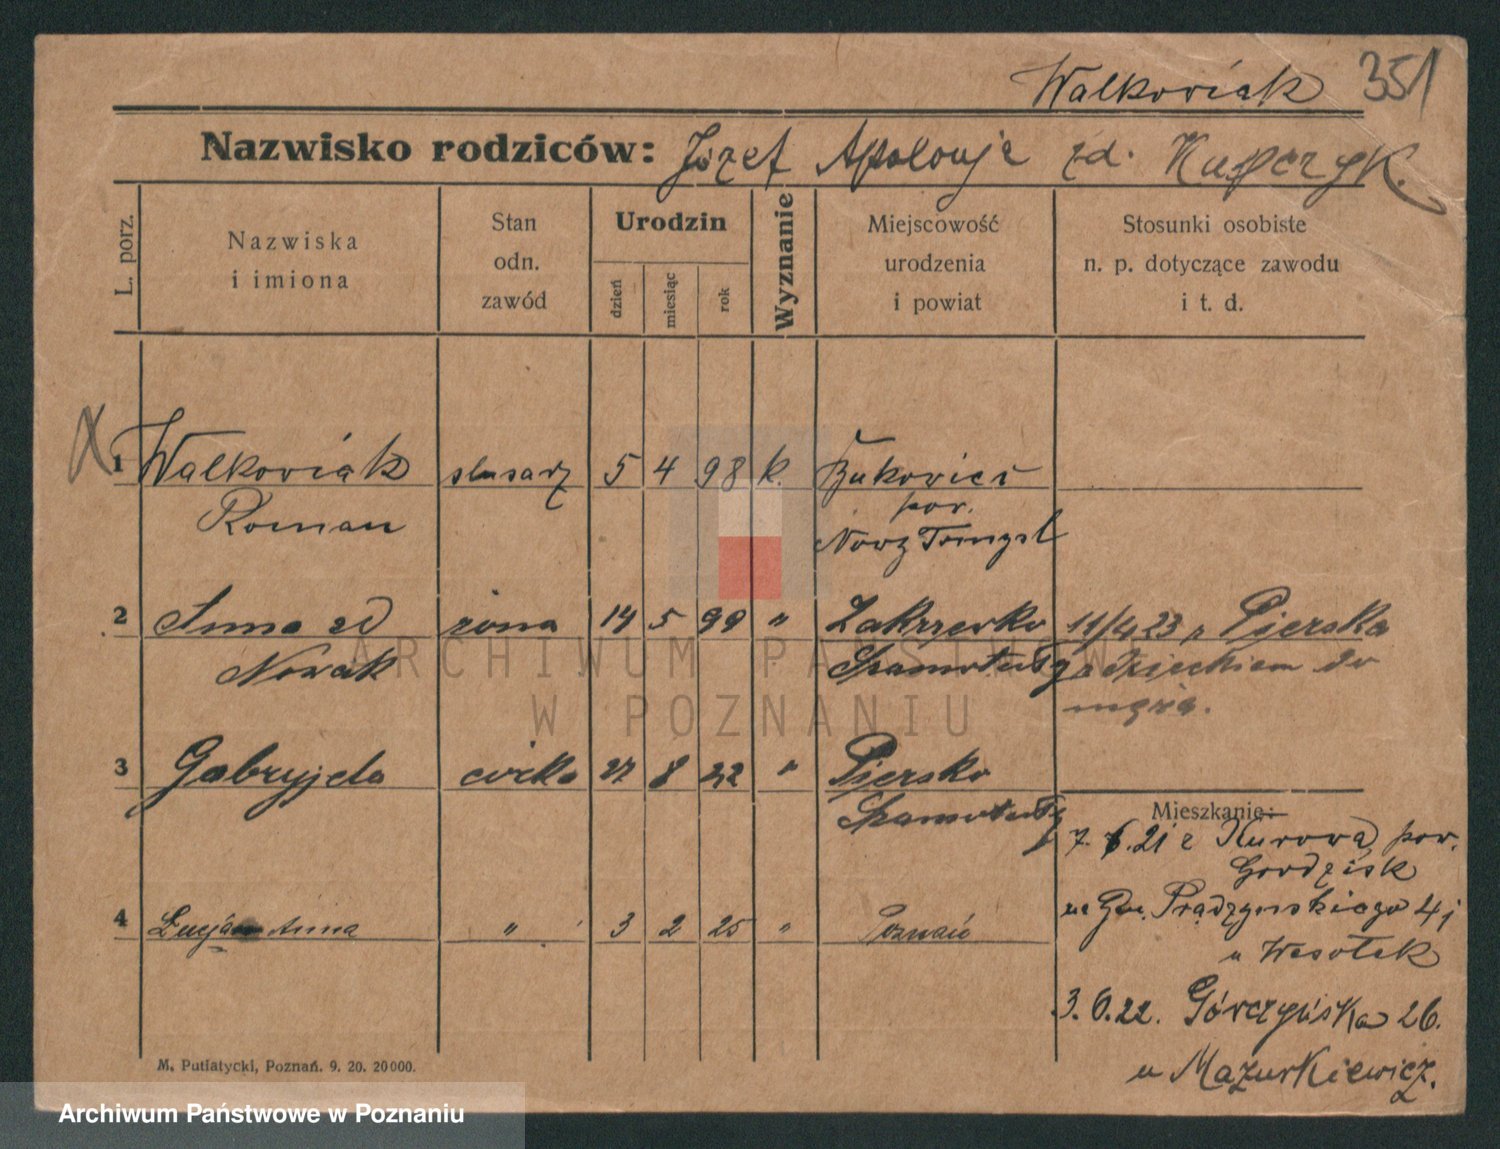 Walkowiak 351
Nazwisko rodziców: Józef Apolonja zd. Kupczyk.
L. porz.
Nazwiska
i imiona
Stan
odn.
zawód
Urodzin
dzień
miesiąc
rok
Wyznanie
Miejscowość
urodzenia
i powiat
Stosunki osobiste
n. p. dotyczące zawodu
i t. d.
1 Walkowiak ślusarz 5 4 98 k. Bukowiec
Roman pow.
Nowy Tomyśl
2 Anna zd żona 14 5 99 " Zakrzewko 11/4 23 z Pierska
Nowak Szamotuły z dzieckiem do
męża.
3 Gabryjela córka 27 8 22 " Piersko
Szamotuły
Mieszkanie:
7. 6. 21 z Kurowa pow.
Grodzisk
na Gen. Prądzyńskiego 4
u Wesołek
4 Łucja Anna " 3 2 25 " Poznań
3. 6. 22. Górczyńska 26.
u Mazurkiewicz.
M. Putiatycki, Poznań. 9. 20. 20000.
ARCHIWUM PAŃSTWOWE
W POZNANIU
Archiwum Państwowe w Poznaniu